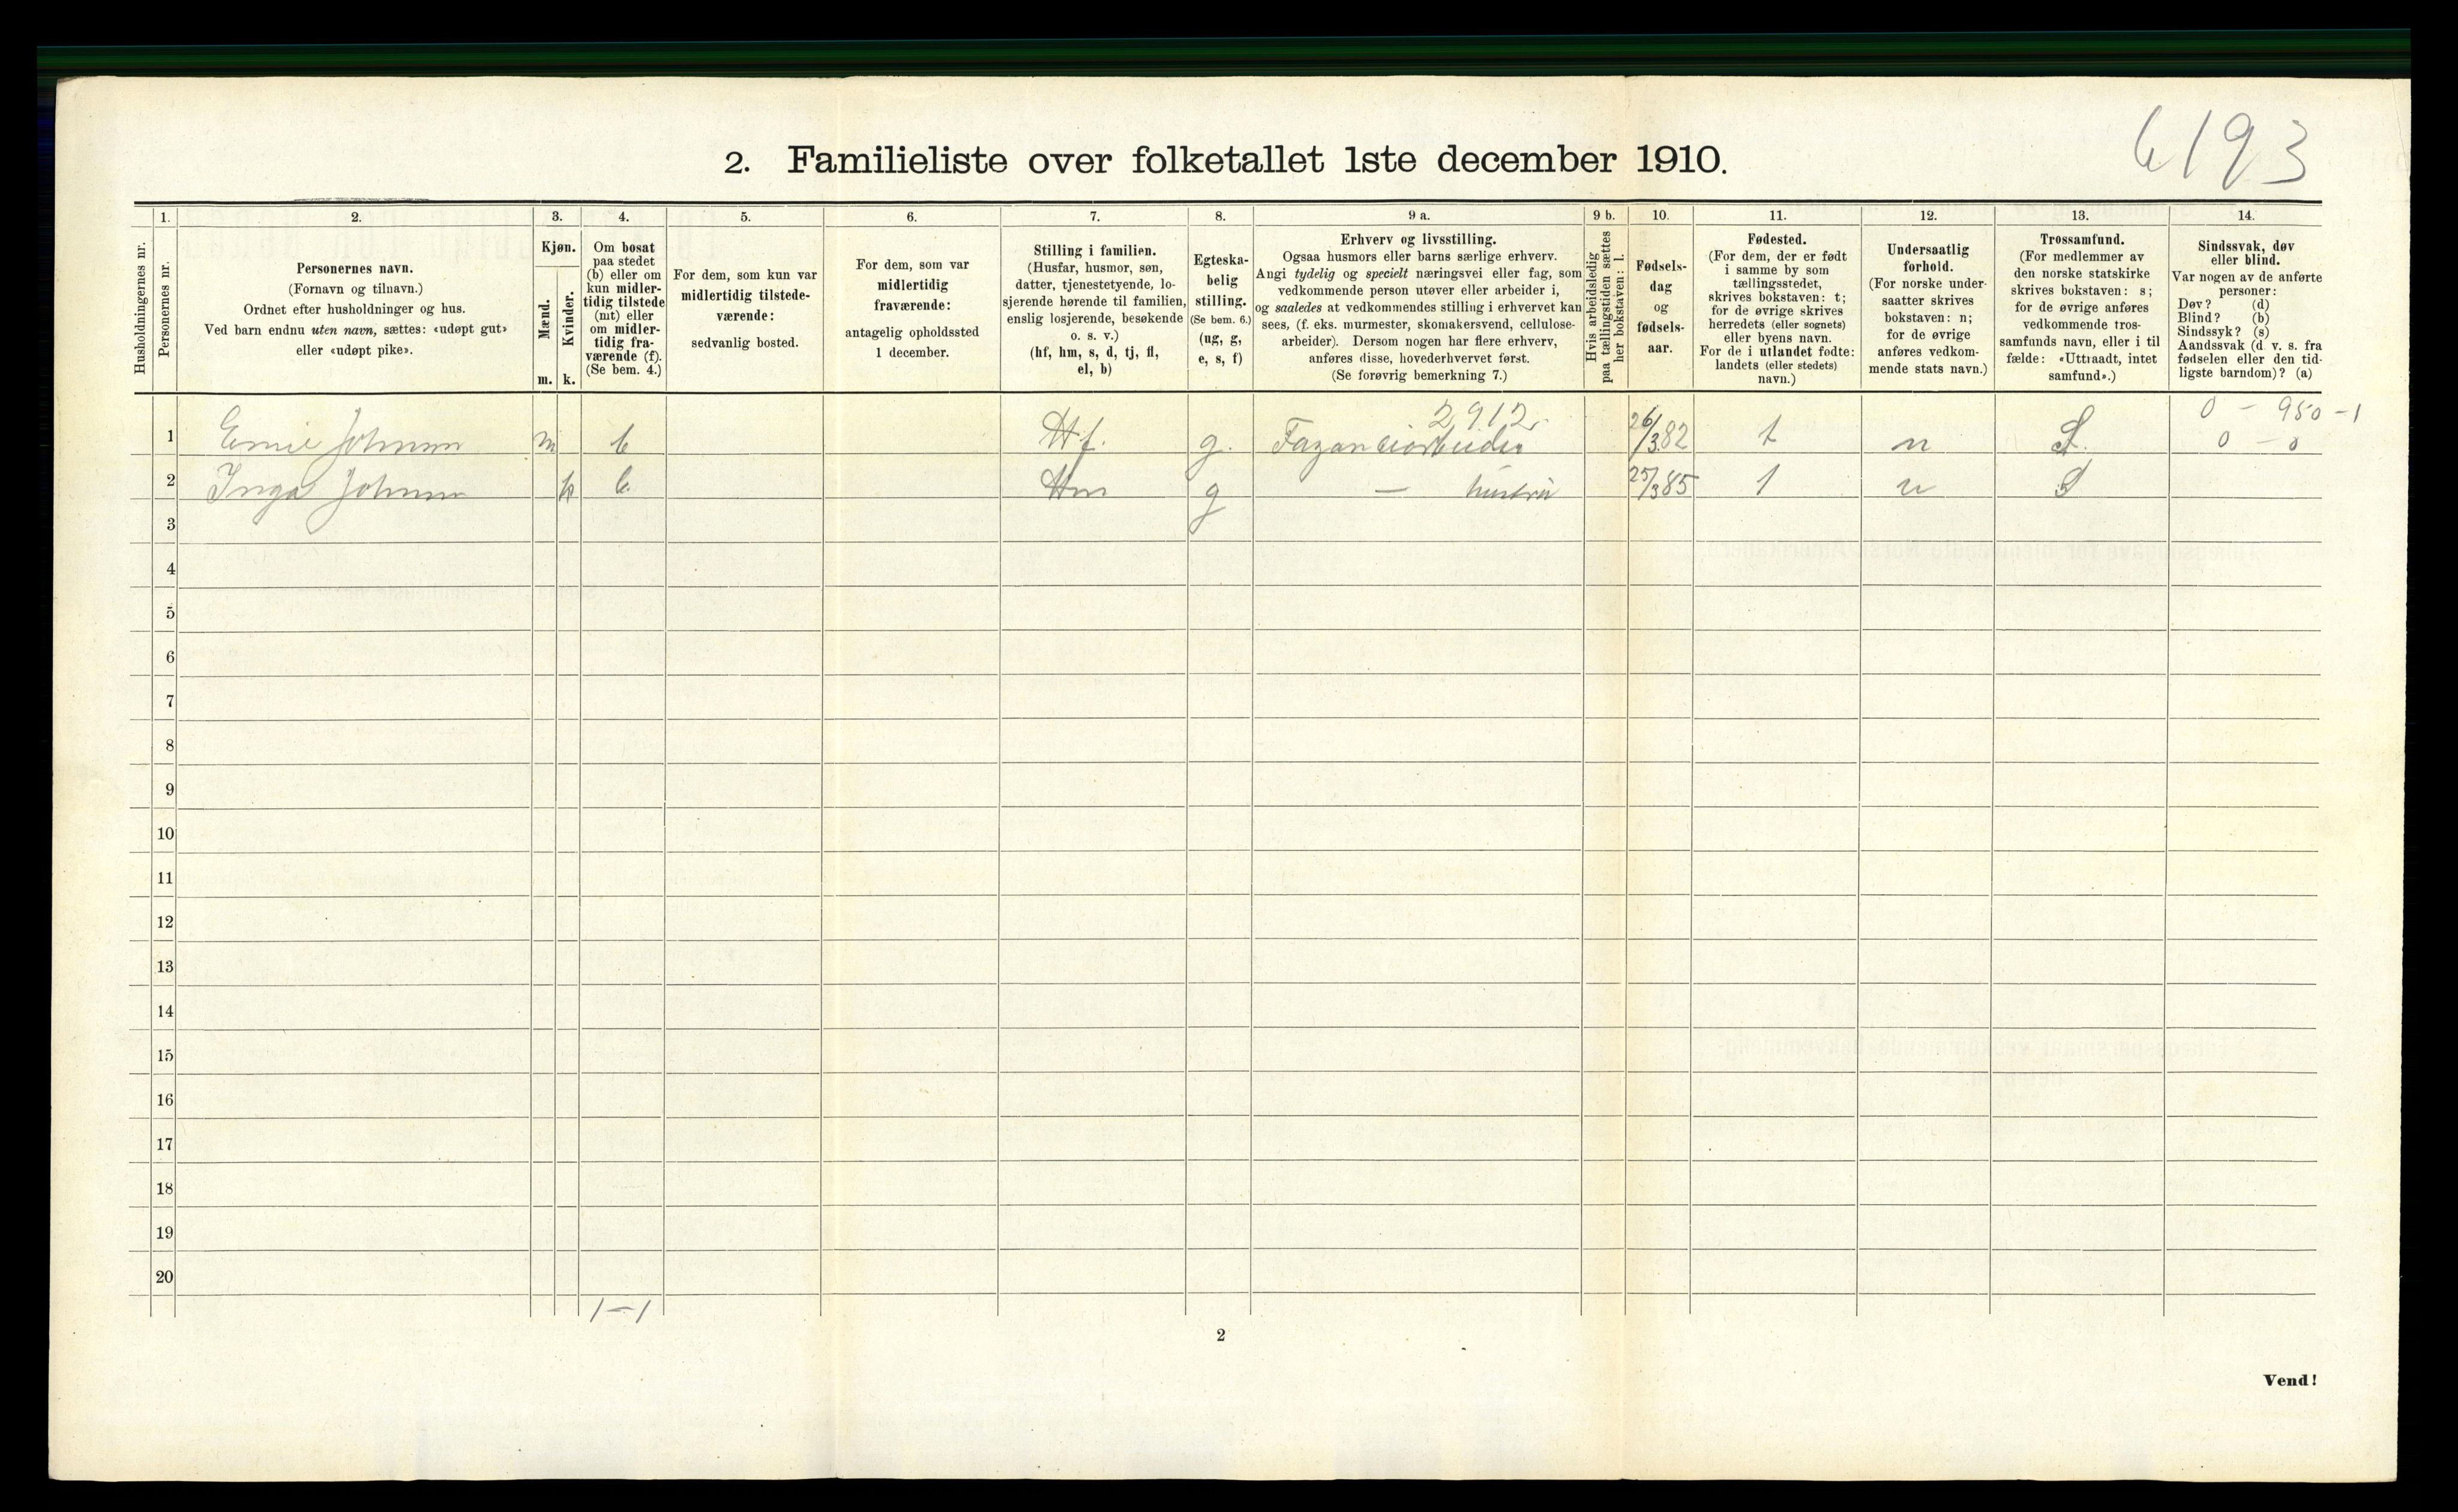 6193
2. Familieliste over folketallet 1ste december 1910.
Husholdningernes nr.
1.
Personernes nr.
2.
Personernes navn.
(Fornavn og tilnavn.)
Ordnet efter husholdninger og hus.
Ved barn endnu uten navn, sættes: «udøpt gut»
eller «udøpt pike».
3.
Kjøn.
Mænd.
Kvinder.
m. k.
4.
Om bosat
paa stedet
(b) eller om
kun midler-
tidig tilstede
(mt) eller
om midler-
tidig fra-
værende (f).
(Se bem. 4.)
5.
For dem, som kun var
midlertidig tilstede-
værende:
sedvanlig bosted.
6.
For dem, som var
midlertidig
fraværende:
antagelig opholdssted
1 december.
7.
Stilling i familien.
(Husfar, husmor, søn,
datter, tjenestetyende, lo-
sjerende hørende til familien,
enslig losjerende, besøkende
o. s. v.)
(hf, hm, s, d, tj, fl,
el, b)
8.
Egteska-
belig
stilling.
(Se bem. 6.)
(ug, g,
e, s, f)
9 a.
Erhverv og livsstilling.
Ogsaa husmors eller barns særlige erhverv.
Angi tydelig og specielt næringsvei eller fag, som
vedkommende person utøver eller arbeider i,
og saaledes at vedkommendes stilling i erhvervet kan
sees, (f. eks. murmester, skomakersvend, cellulose-
arbeider). Dersom nogen har flere erhverv,
anføres disse, hovederhvervet først.
(Se forøvrig bemerkning 7.)
9 b.
Hvis arbeidsledig
paa tællingstiden sættes
her bokstaven: l.
10.
Fødsels-
dag
og
fødsels-
aar.
11.
Fødested.
(For dem, der er født
i samme by som
tællingsstedet,
skrives bokstaven: t;
for de øvrige skrives
herredets (eller sognets)
eller byens navn.
For de i utlandet fødte:
landets (eller stedets)
navn.)
12.
Undersaatlig
forhold.
(For norske under-
saatter skrives
bokstaven: n;
for de øvrige
anføres vedkom-
mende stats navn.)
13.
Trossamfund.
(For medlemmer av
den norske statskirke
skrives bokstaven: s;
for de øvrige anføres
vedkommende tros-
samfunds navn, eller i til
fælde: «Uttraadt, intet
samfund».)
14.
Sindssvak, døv
eller blind.
Var nogen av de anførte
personer:
Døv? (d)
Blind? (b)
Sindssyk? (s)
Aandssvak (d. v. s. fra
fødselen eller den tid-
ligste barndom)? (a)
2912 0 - 950 - 1
1 m b Hf. g. 26/3 82 t n S. 0 - 0
2 Inga k b. Hm g — hustru 25/3 85 t n S
3
4
5
6
7
8
9
10
11
12
13
14
15
16
17
18
19
20
1 - 1
2
Vend!